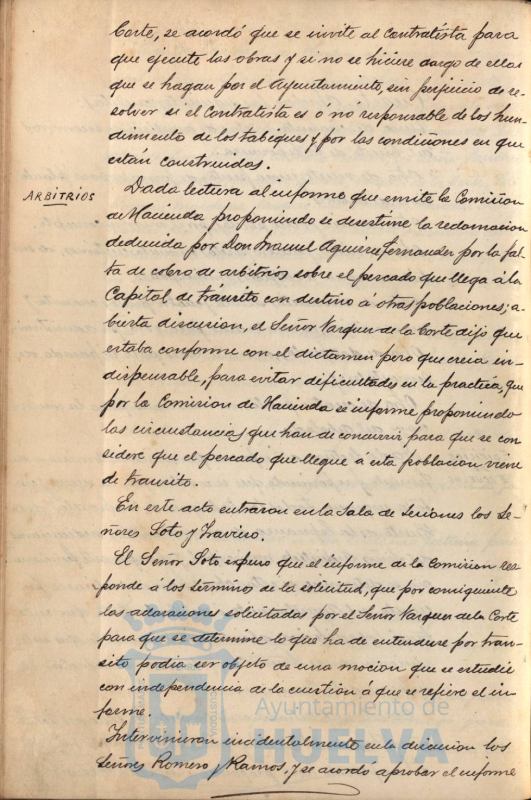 Corte, se acordó que se invite al Contratista para
que ejecute las obras y si no se hiciere cargo de ellas
que se hagan por el Ayuntamiento, sin perjuicio de re-
solver si el Contratista es ó nó responsable de los hun-
dimientos de los tabiques y por las condiciones en que
están construidos.
ARBITRIOS
Dada lectura al informe que emite la Comision
de Hacienda proponiendo se desestime la reclamacion
deducida por Don Manuel Aguirre Fernandez por la fal-
ta de cobro de arbitrios sobre el pescado que llega á la
Capital de tránsito con destino á otras poblaciones; a-
bierta discusion, el Señor Vazquez de la Corte dijo que
estaba conforme con el dictamen pero que creia in-
dispensable, para evitar dificultades en la practica, que
por la Comision de Hacienda se informe proponiendo
las circunstancias que han de concurrir para que se con
sidere que el pescado que llegue á esta poblacion viene
de transito.
En este acto entraron en la Sala de Sesiones los Se-
ñores Soto y Travieso.
El Señor Soto expuso que el informe de la Comision res
ponde á los terminos de la solicitud, que por consiguiente
las aclaraciones solicitadas por el Señor Vazquez de la Corte
para que se determine lo que ha de entenderse por tran-
sito podia ser objeto de una mocion que se estudie
con independencia de la cuestion á que se refiere el in-
forme.
Intervinieron incidentalmente en la discusion los
Señores Romero y Ramos, y se acordó aprobar el informe
Ayuntamiento de
HUELVA